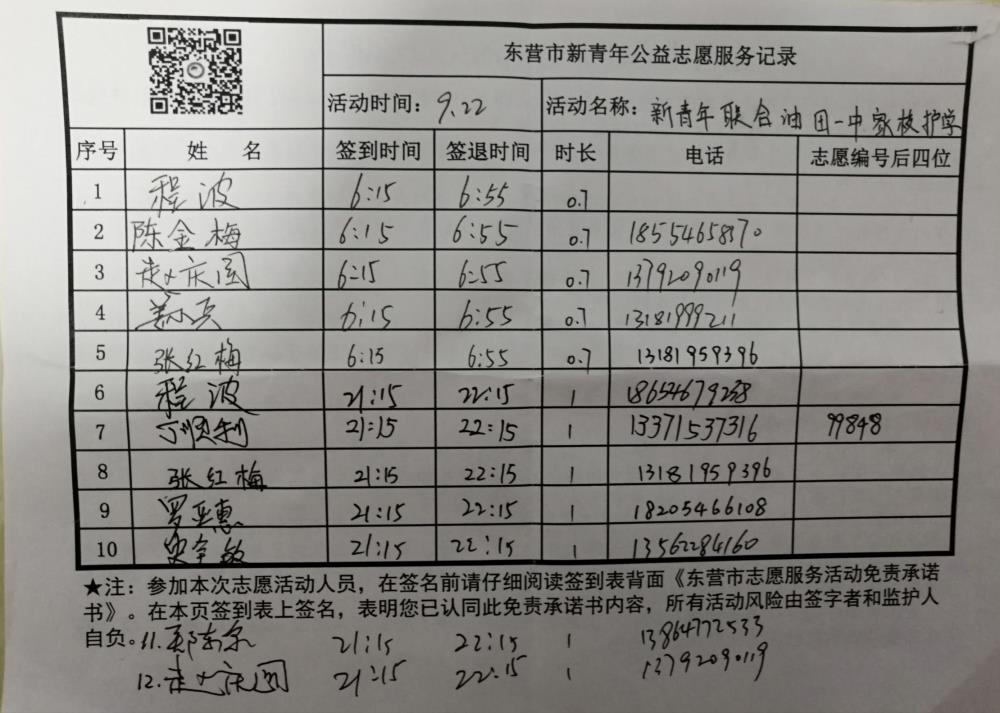 东营市新青年公益志愿服务记录
活动时间：9.22 活动名称：新青年联合油田一中家校护学
序号 姓 名 签到时间 签退时间 时长 电话 志愿编号后四位
1 程波 6:15 6:55 0.7
2 陈金梅 6:15 6:55 0.7 18554658370
3 赵庆圆 6:15 6:55 0.7 13792090119
4 6:15 6:55 0.7 13181999211
5 张红梅 6:15 6:55 0.7 13181959396
6 程波 21:15 22:15 1 18654679238
7 丁顺利 21:15 22:15 1 13371537316 99848
8 张红梅 21:15 22:15 1 13181959396
9 罗亚惠 21:15 22:15 1 18205466108
10 21:15 22:15 1 13562284160
★注：参加本次志愿活动人员，在签名前请仔细阅读签到表背面《东营市志愿服务活动免责承诺
书》。在本页签到表上签名，表明您已认同此免责承诺书内容，所有活动风险由签字者和监护人
自负。
11. 21:15 22:15 1 13864772533
12.赵庆圆 21:15 22:15 1 13792090119